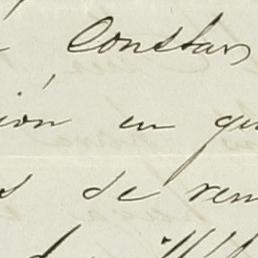 Constan
ión en qu
s de ren